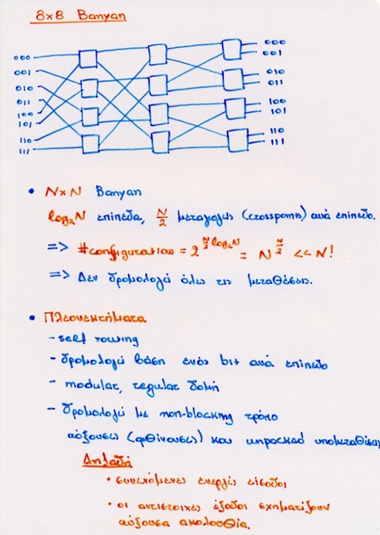 8x8 Banyan
000
001
010
011
100
101
110
111
000
001
010
011
100
101
110
111
• N×N Banyan
log₂N επίπεδα, N/2 μεταγωγείς (crosspoints) ανά επίπεδο.
=> #configurations = 2^(N/2 log₂N) = N^(N/2) << N!
=> Δεν δρομολογεί όλες τις μεταθέσεις.
• Πλεονεκτήματα
- self routing
- δρομολογεί βάση ενός bit ανά επίπεδο
- modular, regular δομή
- δρομολογεί με non-blocking τρόπο
αύξουσες (φθίνουσες) και υπομεταθέσεις
Δηλαδή
• συνεχόμενες ενεργές είσοδοι
• οι αντίστοιχες έξοδοι σχηματίζουν
αύξουσα ακολουθία.